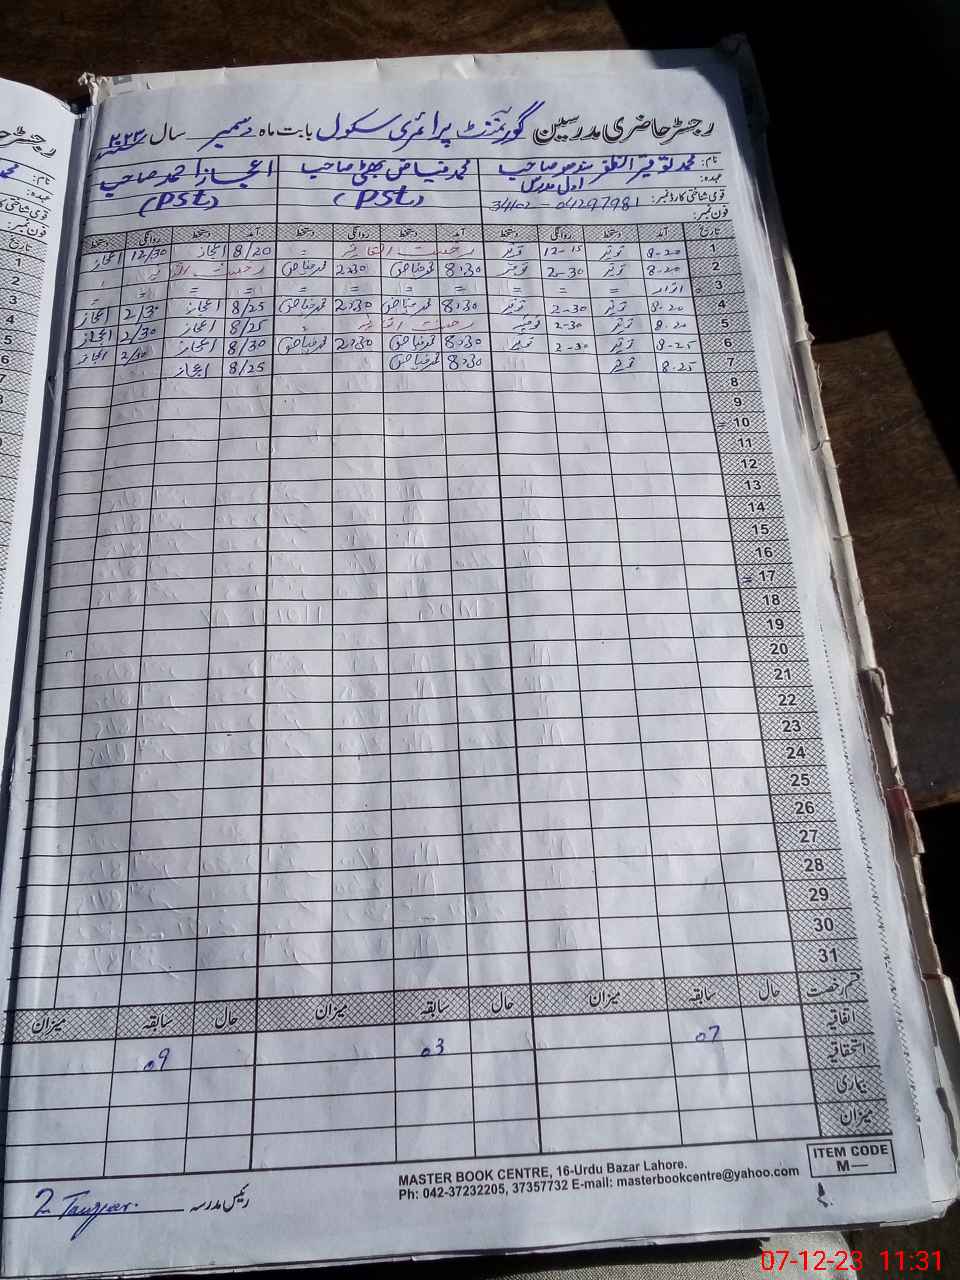 رجسٹر حاضری مدرسین گورنمنٹ پرائمری سکول بابت ماہ دسمبر سال ۲۰۲۳
نام: محمد توقیر صاحب محمد فیاض بھٹی صاحب اعجاز احمد صاحب
عہدہ: اول مدرس (PST) (PST)
قومی شناختی کارڈ نمبر: 34102-04297981
فون نمبر:
تاریخ آمد دستخط روانگی دستخط آمد دستخط روانگی دستخط آمد دستخط روانگی دستخط
1 8-20 توقیر 12-15 توقیر رخصت اتفاقیہ 8/20 اعجاز 12/30 اعجاز
2 8-20 توقیر 2-30 توقیر 8:30 محمد فیاض 2:30 محمد فیاض رخصت اتفاقیہ
3 اتوار = = = = = = = = =
4 8-20 توقیر 2-30 توقیر 8:30 محمد فیاض 2:30 محمد فیاض 8/25 اعجاز 2/30 اعجاز
5 8-20 توقیر 2-30 توقیر رخصت اتفاقیہ 8/25 اعجاز 2/30 اعجاز
6 8-25 توقیر 2-30 توقیر 8:30 محمد فیاض 2:30 محمد فیاض 8/30 اعجاز 2/30 اعجاز
7 8-25 توقیر 8:30 محمد فیاض 8/25 اعجاز
8
9
10
11
12
13
14
15
16
17
18
19
20
21
22
23
24
25
26
27
28
29
30
31
قسم رخصت حال سابقہ میزان حال سابقہ میزان حال سابقہ میزان
اتفاقیہ 07 03 09
استحقاقیہ
بیماری
میزان
رئیس مدرسہ
MASTER BOOK CENTRE, 16-Urdu Bazar Lahore.
Ph: 042-37232205, 37357732 E-mail: masterbookcentre@yahoo.com
ITEM CODE
M—
07-12-23 11:31